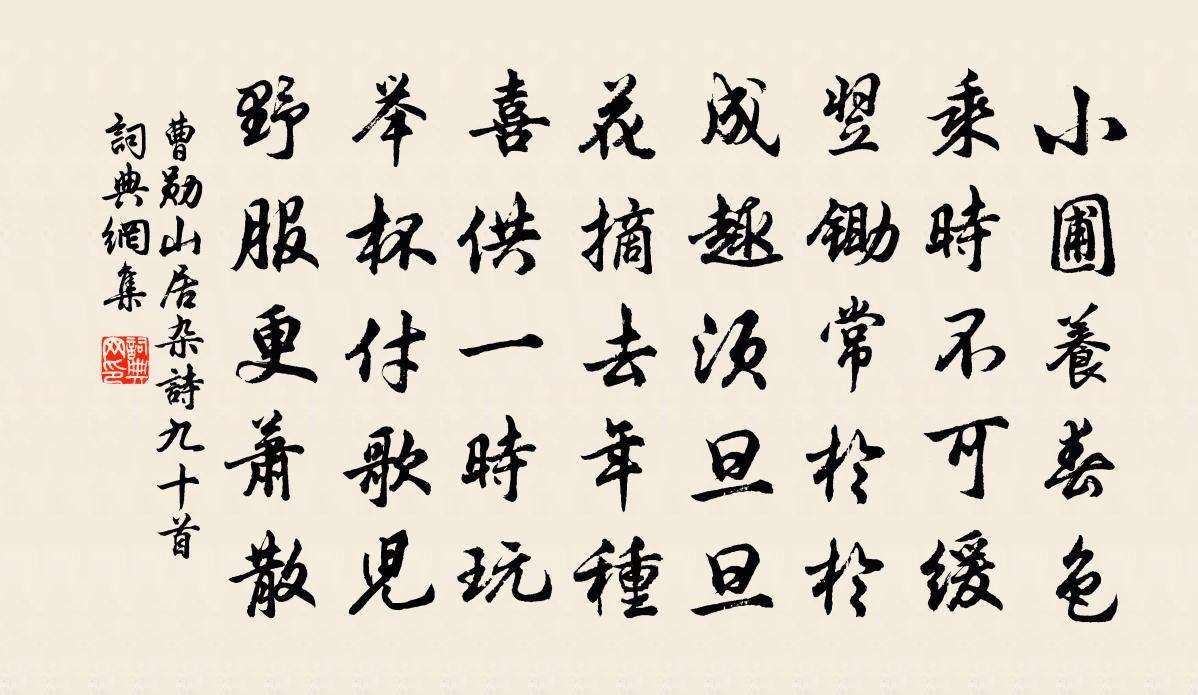 小圃養春色
乘時不可緩
翌鋤常於於
成趣須旦旦
花摘去年種
喜供一時玩
举杯付歌児
野服更蕭散
曹勛山居杂詩九十首
詞典網集
詞典网印